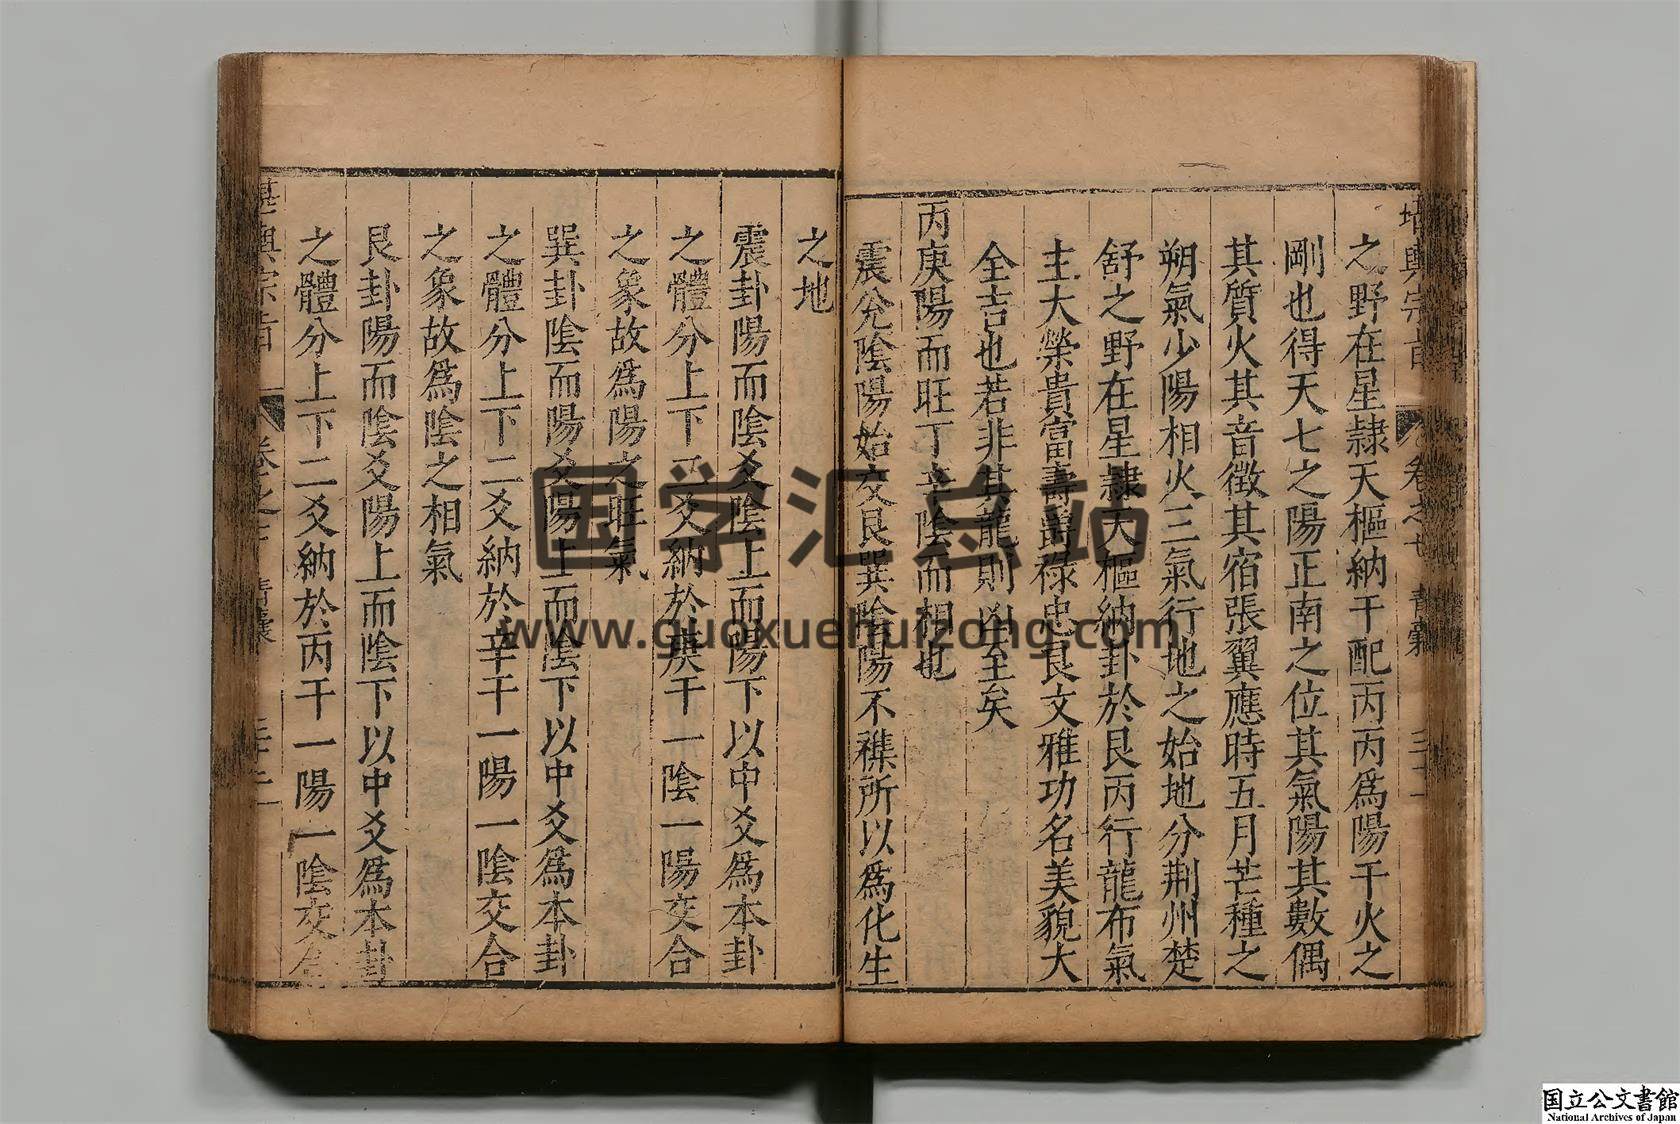 堪輿宗旨 卷之七 青囊 三十一
之野在星隷天樞納干配丙丙爲陽干火之
剛也得天七之陽正南之位其氣陽其數偶
其質火其音徵其宿張翼應時五月芒種之
朔氣少陽相火三氣行地之始地分荆州楚
舒之野在星隷天樞納卦於艮丙行龍布氣
主大榮貴富壽爵祿忠良文雅功名美貌大
全吉也若非其龍則凶至矣
丙庚陽而旺丁辛陰而相也
震兊陰陽始交艮巽陰陽不襍所以爲化生
之地
震卦陽而陰爻陰上而陽下以中爻爲本卦
之體分上下二爻納於庚干一陰一陽交合
之象故爲陽之旺氣
巽卦陰而陽爻陽上而陰下以中爻爲本卦
之體分上下二爻納於辛干一陽一陰交合
之象故爲陰之相氣
艮卦陽而陰爻陽上而陰下以中爻爲本卦
之體分上下二爻納於丙干一陽一陰交合
堪輿宗旨 卷之七 青囊 三十二
国学汇总站
www.guoxuehuizong.com
国立公文書館
National Archives of Japan